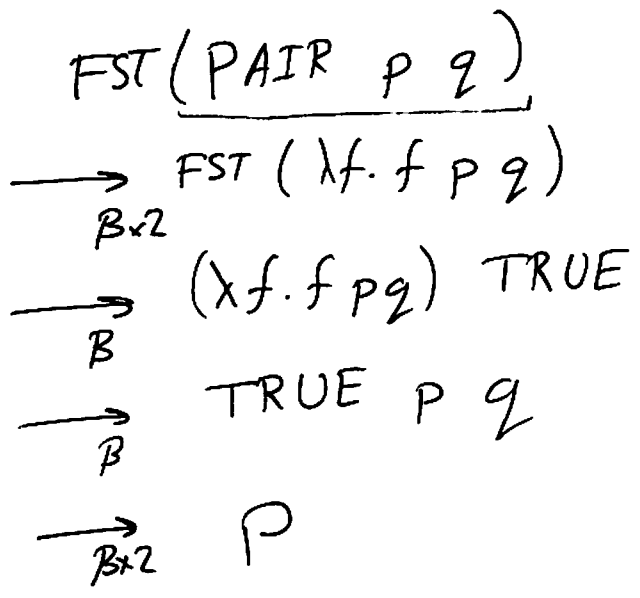 FST (PAIR p q)
→β×2 FST (λf. f p q)
→β (λf. f p q) TRUE
→β TRUE p q
→β×2 p